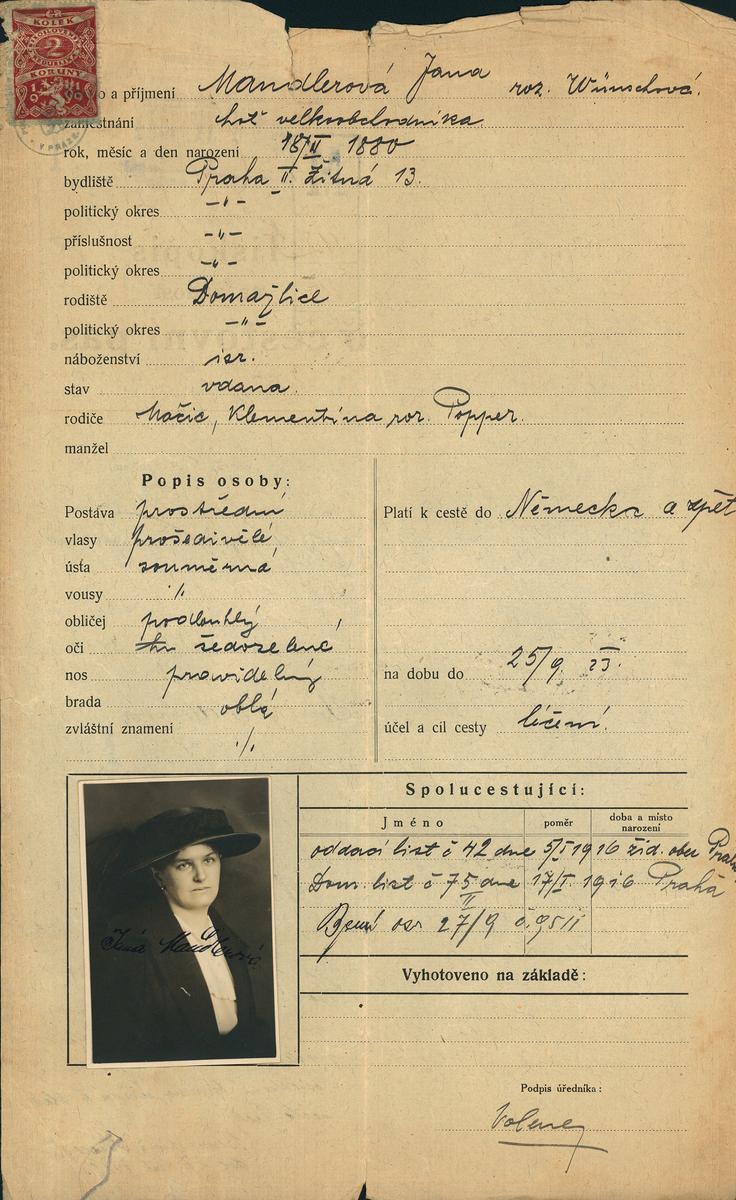 KOLEK
2
KORUNY
V PRAZE
o a příjmení Mandlerová Jana roz. Wünschová.
zaměstnání choť velkoobchodníka
rok, měsíc a den narození 18/II. 1880
bydliště Praha II. Žitná 13.
politický okres -"-
příslušnost -"-
politický okres -"-
rodiště Domažlice
politický okres -"-
náboženství isr.
stav vdana.
rodiče Klementina roz. Popper.
manžel
Popis osoby:
Postava prostřední
vlasy prošedivělé
ústa souměrná
vousy ./.
obličej podlouhlý
oči šedozelené
nos pravidelný
brada oblá
zvláštní znamení
./.
Platí k cestě do Německa a zpět
na dobu do 25/9. 23.
účel a cíl cesty léčení.
Spolucestující:
Jméno poměr doba a místo narození
oddací list č 42 dne 5/I 1916 žid. obec Praha
Dom list č 75 dne 17/I. 1916 Praha
II
27/9 č. 9511
Vyhotoveno na základě:
Jana Mandlerová
Podpis úředníka: